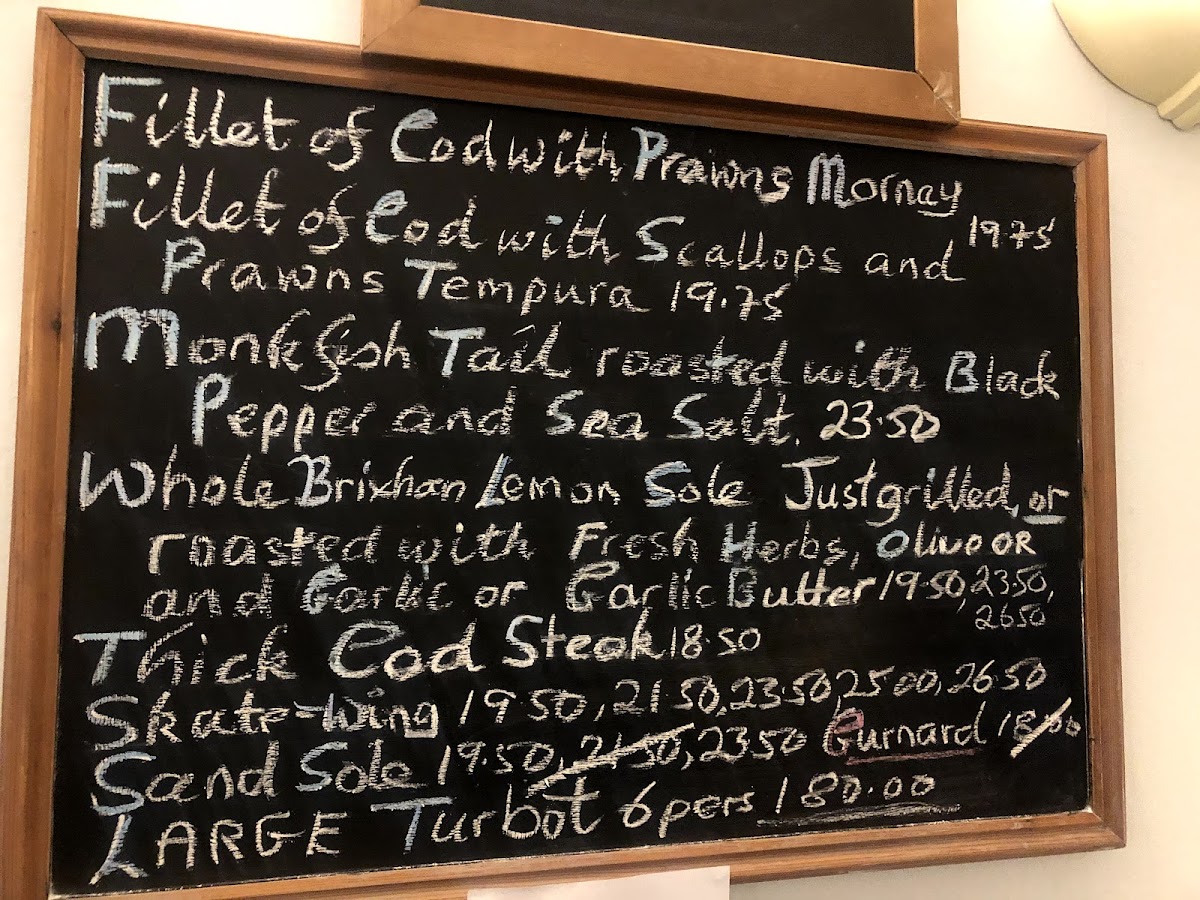 Fillet of Cod with Prawns Mornay
19.75
Fillet of Cod with Scallops and
Prawns Tempura 19.75
Monkfish Tail roasted with Black
Pepper and Sea Salt. 23.50
Whole Brixhan Lemon Sole Just grilled, or
roasted with Fresh Herbs, Olive OR
and Garlic or Garlic Butter 19.50, 23.50,
26.50
Thick Cod Steak 18.50
Skate-Wing 19.50, 21.50, 23.50, 25.00, 26.50
Sand Sole 19.50, 21.50, 23.50 Gurnard 18.00
LARGE Turbot 6pers 180.00